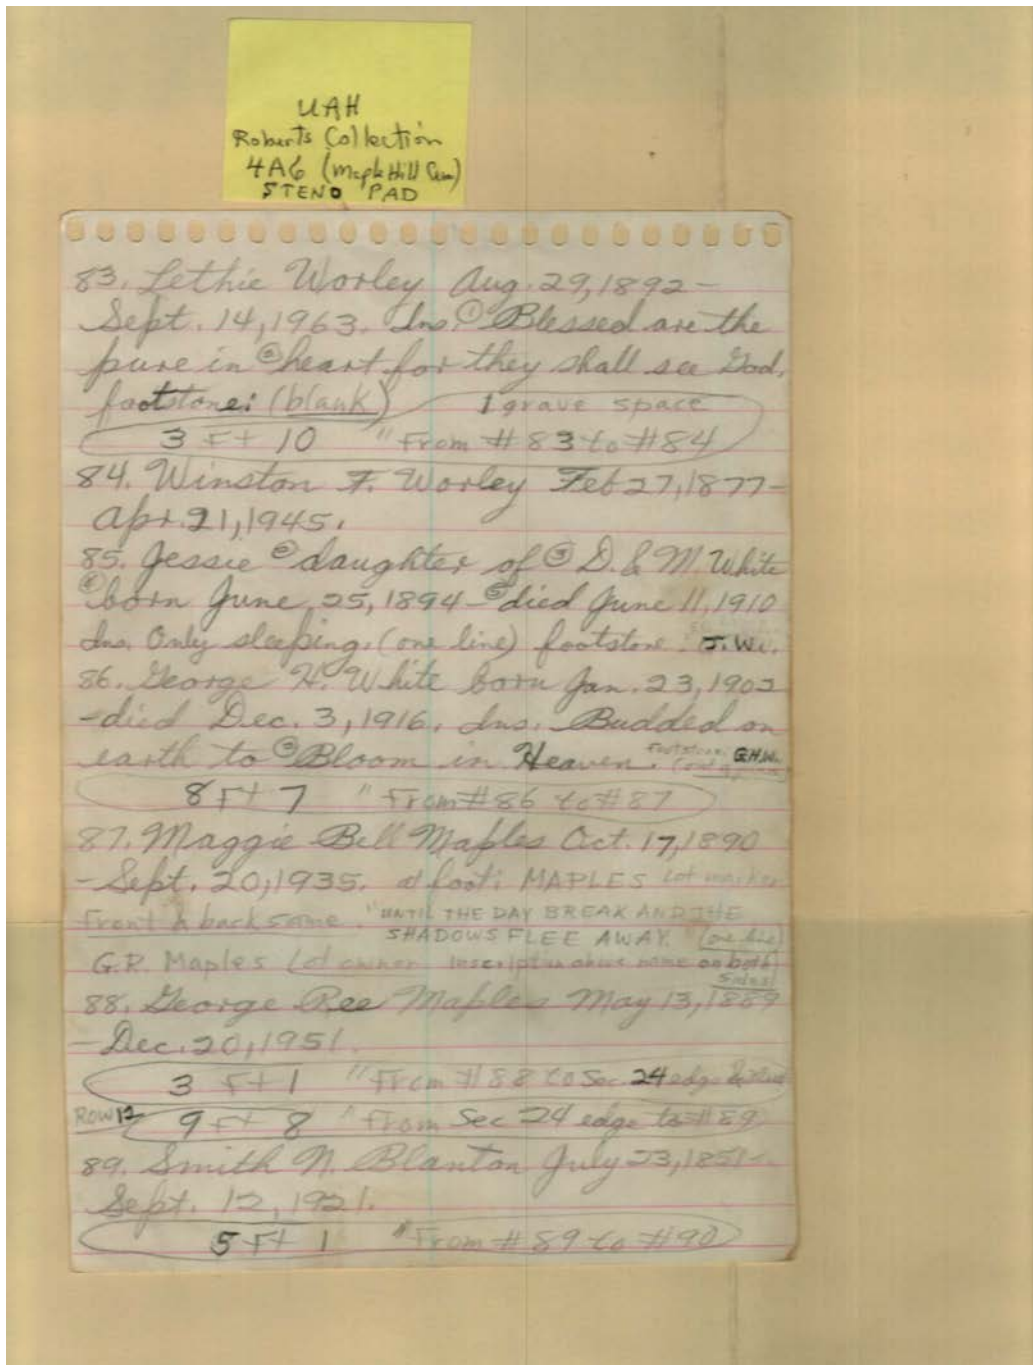 UAH
Roberts Collection
4A6 (Maple Hill Cem)
STENO PAD
83. Lethie Worley Aug. 29, 1892 -
Sept. 14, 1963. Ins. ① Blessed are the
pure in ② heart for they shall see God.
footstone: (blank) 1 grave space
3 Ft 10 " From #83 to #84
84. Winston F. Worley Feb 27, 1877-
Apr. 21, 1945.
85. Jessie ② daughter of ③ D. & M. White
④ born June 25, 1894 - ⑤ died June 11, 1910
Ins. Only sleeping. (one line) footstone. J.W.
86. George H. White born Jan. 23, 1902
-died Dec. 3, 1916. Ins. Budded on
earth to ② Bloom in Heaven. footstone: G.H.W.
8 Ft 7 " From #86 to #87
87. Maggie Bell Maples Oct. 17, 1890
-Sept. 20, 1935. at foot: MAPLES Lot marker
Front & back same. "UNTIL THE DAY BREAK AND THE
SHADOWS FLEE AWAY. (one line)
G.R. Maples Lot owner inscription above name on both
sides
88. George Ree Maples May 13, 1889
-Dec. 20, 1951.
3 Ft 1 " From #88 to Sec. 24 edge &
ROW 12 9 Ft 8 " From Sec 24 edge to #89
89. Smith N. Blanton July 23, 1851-
Sept. 12, 1921.
5 Ft 1 " From #89 to #90